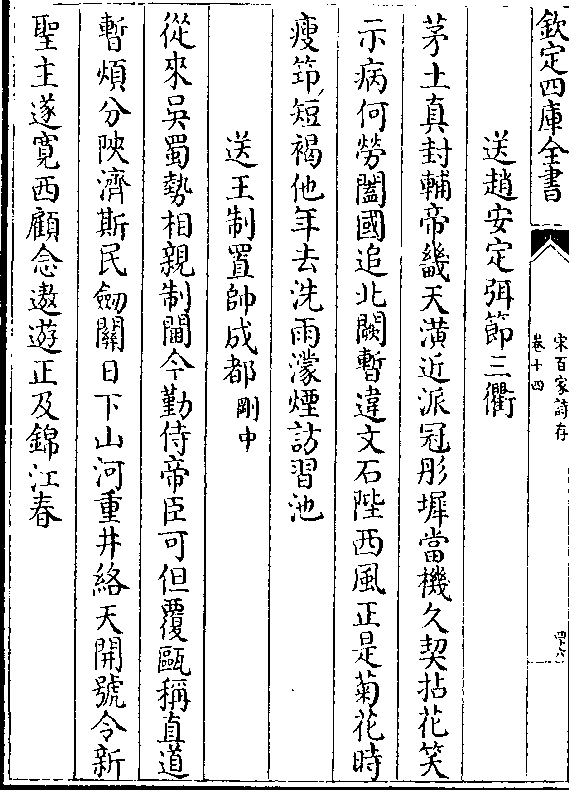 欽定四庫全書
宋百家詩存
卷十四
四十六
送趙安定弭節三衢
茅土真封輔帝畿天潢近派冠彤墀當機久契拈花笑
示病何勞闔國追北闕暫違文石陛西風正是菊花時
瘦笻短褐他年去洗雨濛煙訪習池
送王制置帥成都剛中
從來吳蜀勢相親制閫今勤侍帝臣可但覆甌稱直道
暫煩分陜濟斯民劒闗日下山河重井絡天開號令新
聖主遂寛西顧念遨遊正及錦江春